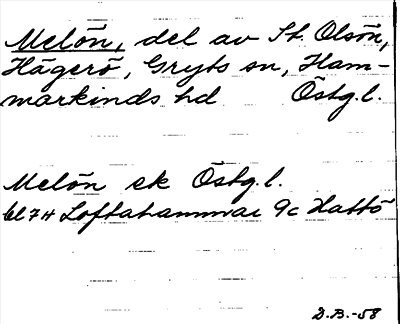 Melön, del av St. Olsön,
Hägerö, Gryts sn, Ham-
markinds hd Östg.l.
Melön ek Östg.l.
bl 74 Loftahammar 9c Hattö
D.B.-58